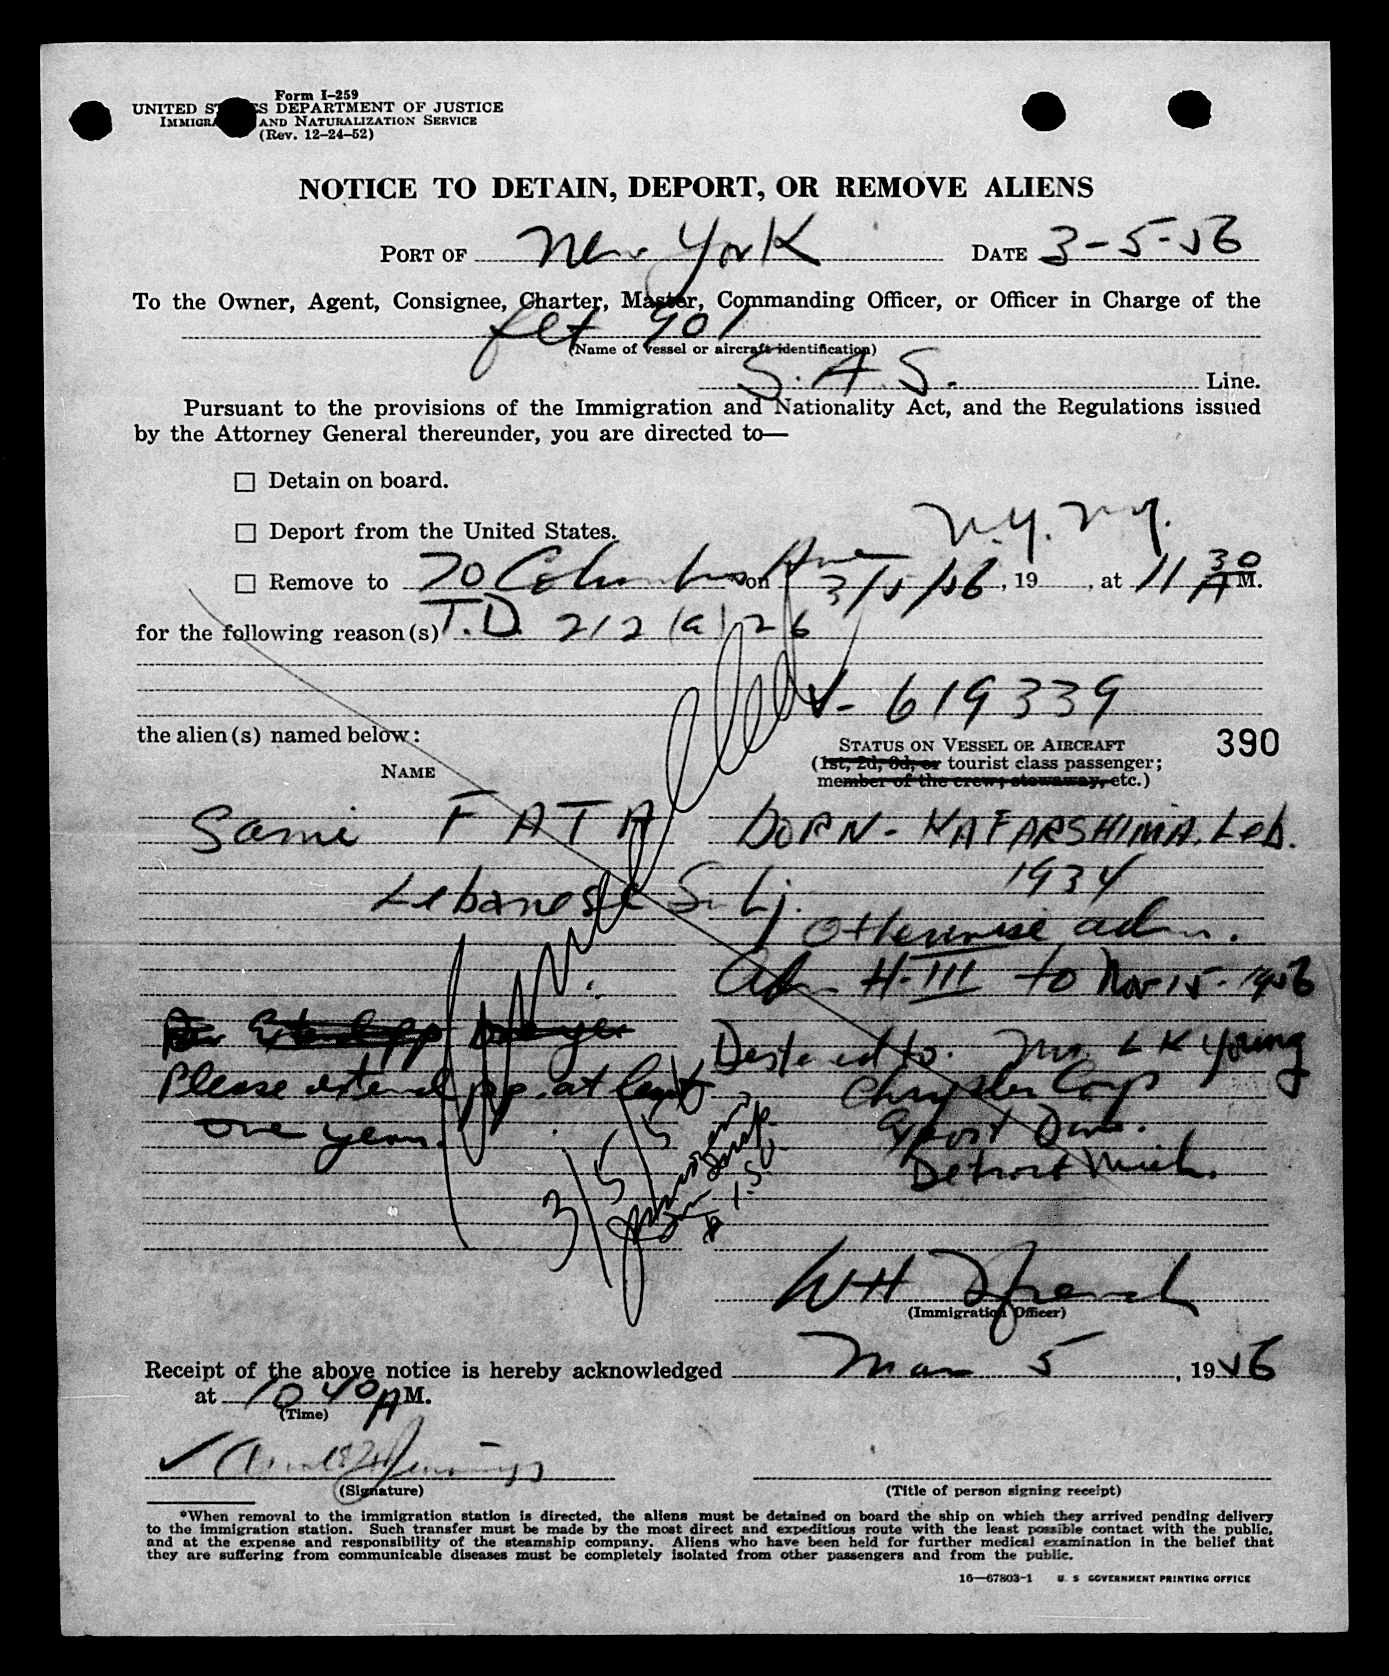 Form I-259
UNITED STATES DEPARTMENT OF JUSTICE
IMMIGRATION AND NATURALIZATION SERVICE
(Rev. 12-24-52)
NOTICE TO DETAIN, DEPORT, OR REMOVE ALIENS
PORT OF New York DATE 3-5-56
To the Owner, Agent, Consignee, Charter, Master, Commanding Officer, or Officer in Charge of the
flt 901
(Name of vessel or aircraft identification)
S.A.S. Line.
Pursuant to the provisions of the Immigration and Nationality Act, and the Regulations issued
by the Attorney General thereunder, you are directed to—
☐ Detain on board.
☐ Deport from the United States.
N.Y. N.Y.
☐ Remove to 70 Columbus Ave on 3/5/56, 19 , at 11 30 A M.
for the following reason(s) T.D. 212 (a) 26
V- 619339
the alien(s) named below:
390
STATUS ON VESSEL OR AIRCRAFT
(1st, 2d, 3d, or tourist class passenger;
member of the crew; stowaway, etc.)
NAME
Sami FATA BORN - KAFARSHIMA, Leb.
1934
Lebanese Subj.
Otherwise adm.
Adm H-III to Nov 15 - 1956
Destined to. Mr. L K Young
Please extend pp. at least Chrysler Corp
one year. Export Div.
Detroit Mich.
3/5/
WH French
(Immigration Officer)
Receipt of the above notice is hereby acknowledged Mar 5, 1956
at 10 40 A M.
(Time)
(Signature) (Title of person signing receipt)
*When removal to the immigration station is directed, the aliens must be detained on board the ship on which they arrived pending delivery
to the immigration station. Such transfer must be made by the most direct and expeditious route with the least possible contact with the public,
and at the expense and responsibility of the steamship company. Aliens who have been held for further medical examination in the belief that
they are suffering from communicable diseases must be completely isolated from other passengers and from the public.
16—67803-1 U. S. GOVERNMENT PRINTING OFFICE